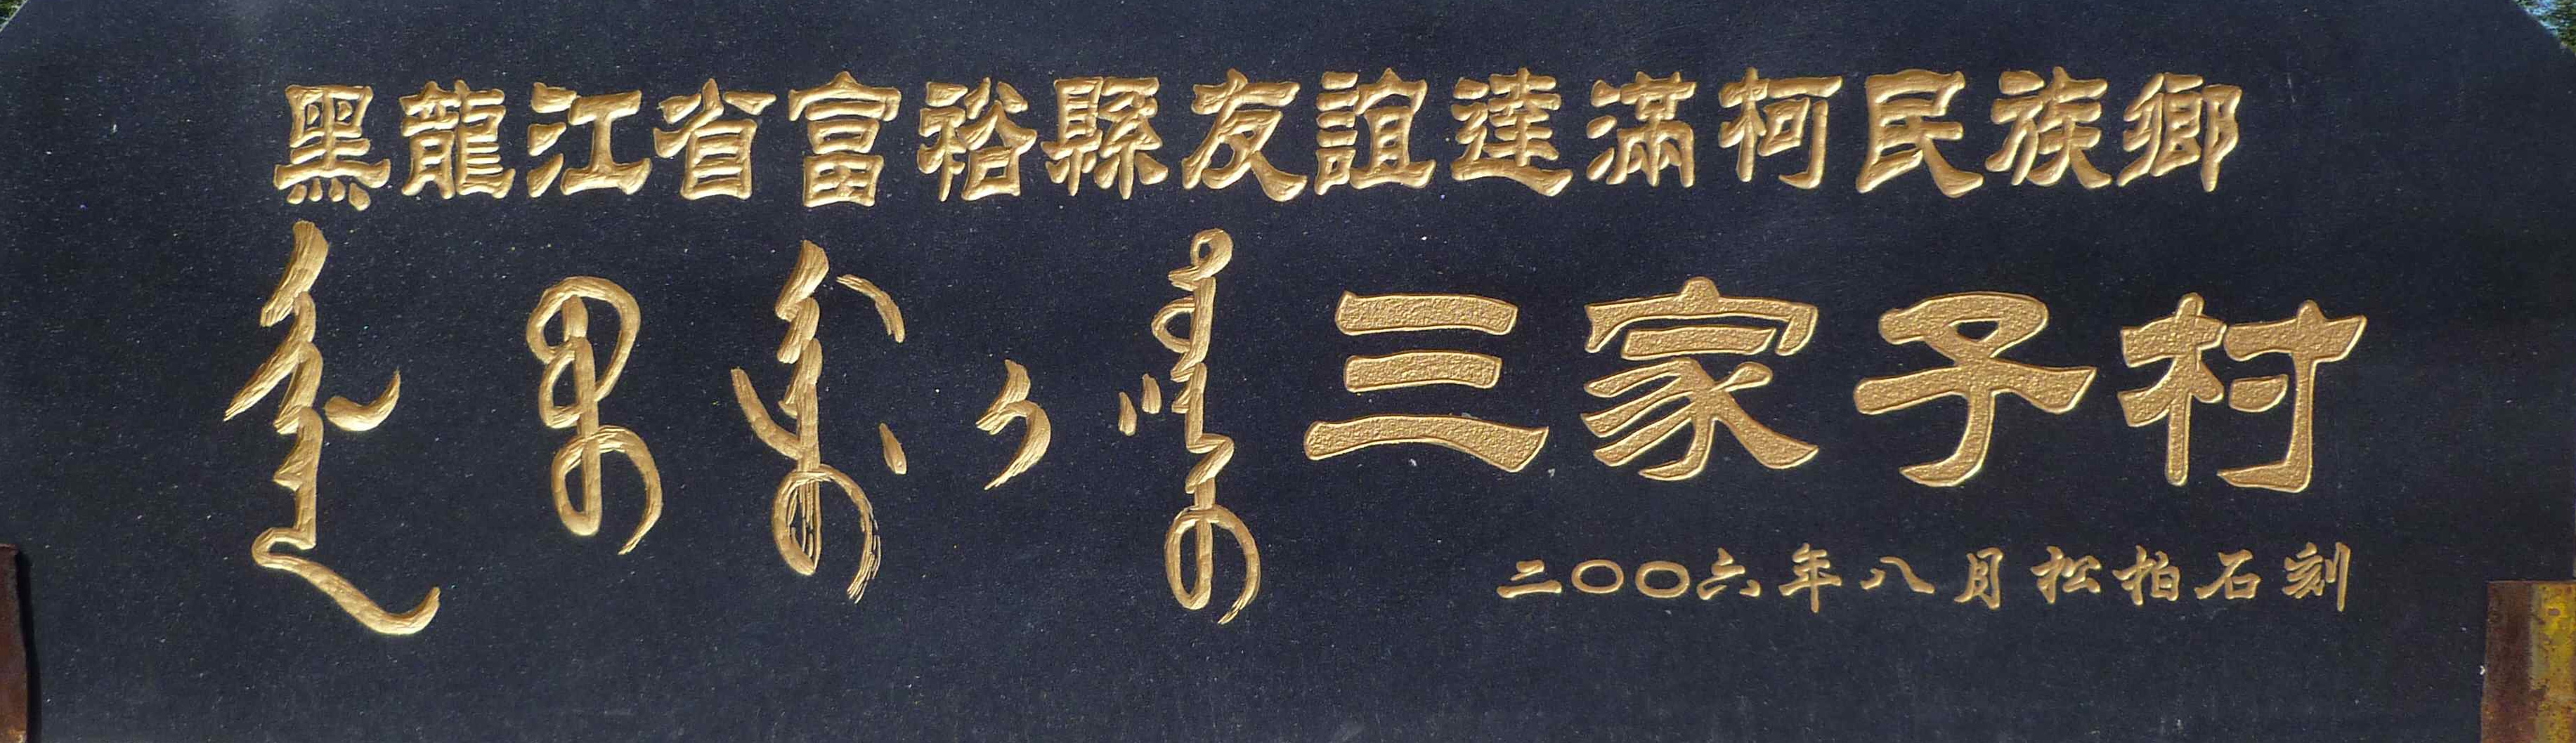 黑龍江省富裕縣友誼達滿柯民族鄉
ᡳᠯᠠᠨ ᠪᠣᠣ
三家子村
二〇〇六年八月松柏石刻